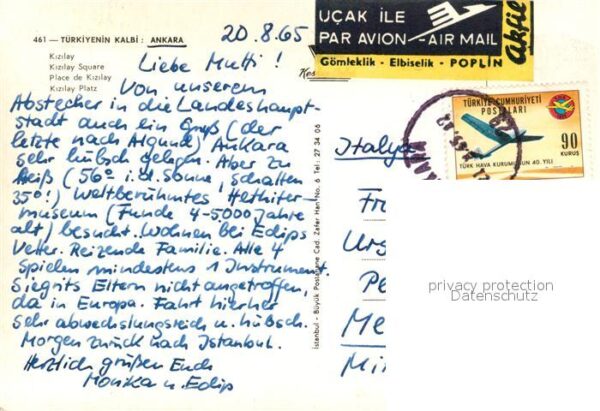 461 — TÜRKİYENİN KALBİ : ANKARA
Kızılay
Kızılay Square
Place de Kızılay
Kızılay Platz
20.8.65
UÇAK İLE
PAR AVION - AIR MAIL
Gömleklik - Elbiselik - POPLİN
akfil
Liebe Mutti !
Von unserem
Abstecher in die Landeshaupt-
stadt auch ein Gruß (der
letzte nach Algund) Ankara
sehr hübsch gelegen. Aber zu
heiß (56° i.d. Sonne, Schatten
35°!) Weltberühmtes Hethiter-
museum (Funde 4-5.000 Jahre
alt) besucht. Wohnen bei Edips
Vetter. Reizende Familie. Alle 4
spielen mindestens 1 Instrument.
Siegrits Eltern nicht angetroffen,
da in Europa. Fahrt hierher
sehr abwechslungsreich u. hübsch.
Morgen zurück nach Istanbul.
Herzlich grüßen Euch
Monika u. Edip
İstanbul - Büyük Postahane Cad. Zafer Han No. 6 Tel : 27 34 06
TÜRKİYE CUMHURİYETİ
POSTALARI
90
KURUŞ
TÜRK HAVA KURUMU'NUN 40. YILI
Italya
Fr
Urs
Pe
Me
Mi
privacy protection
Datenschutz